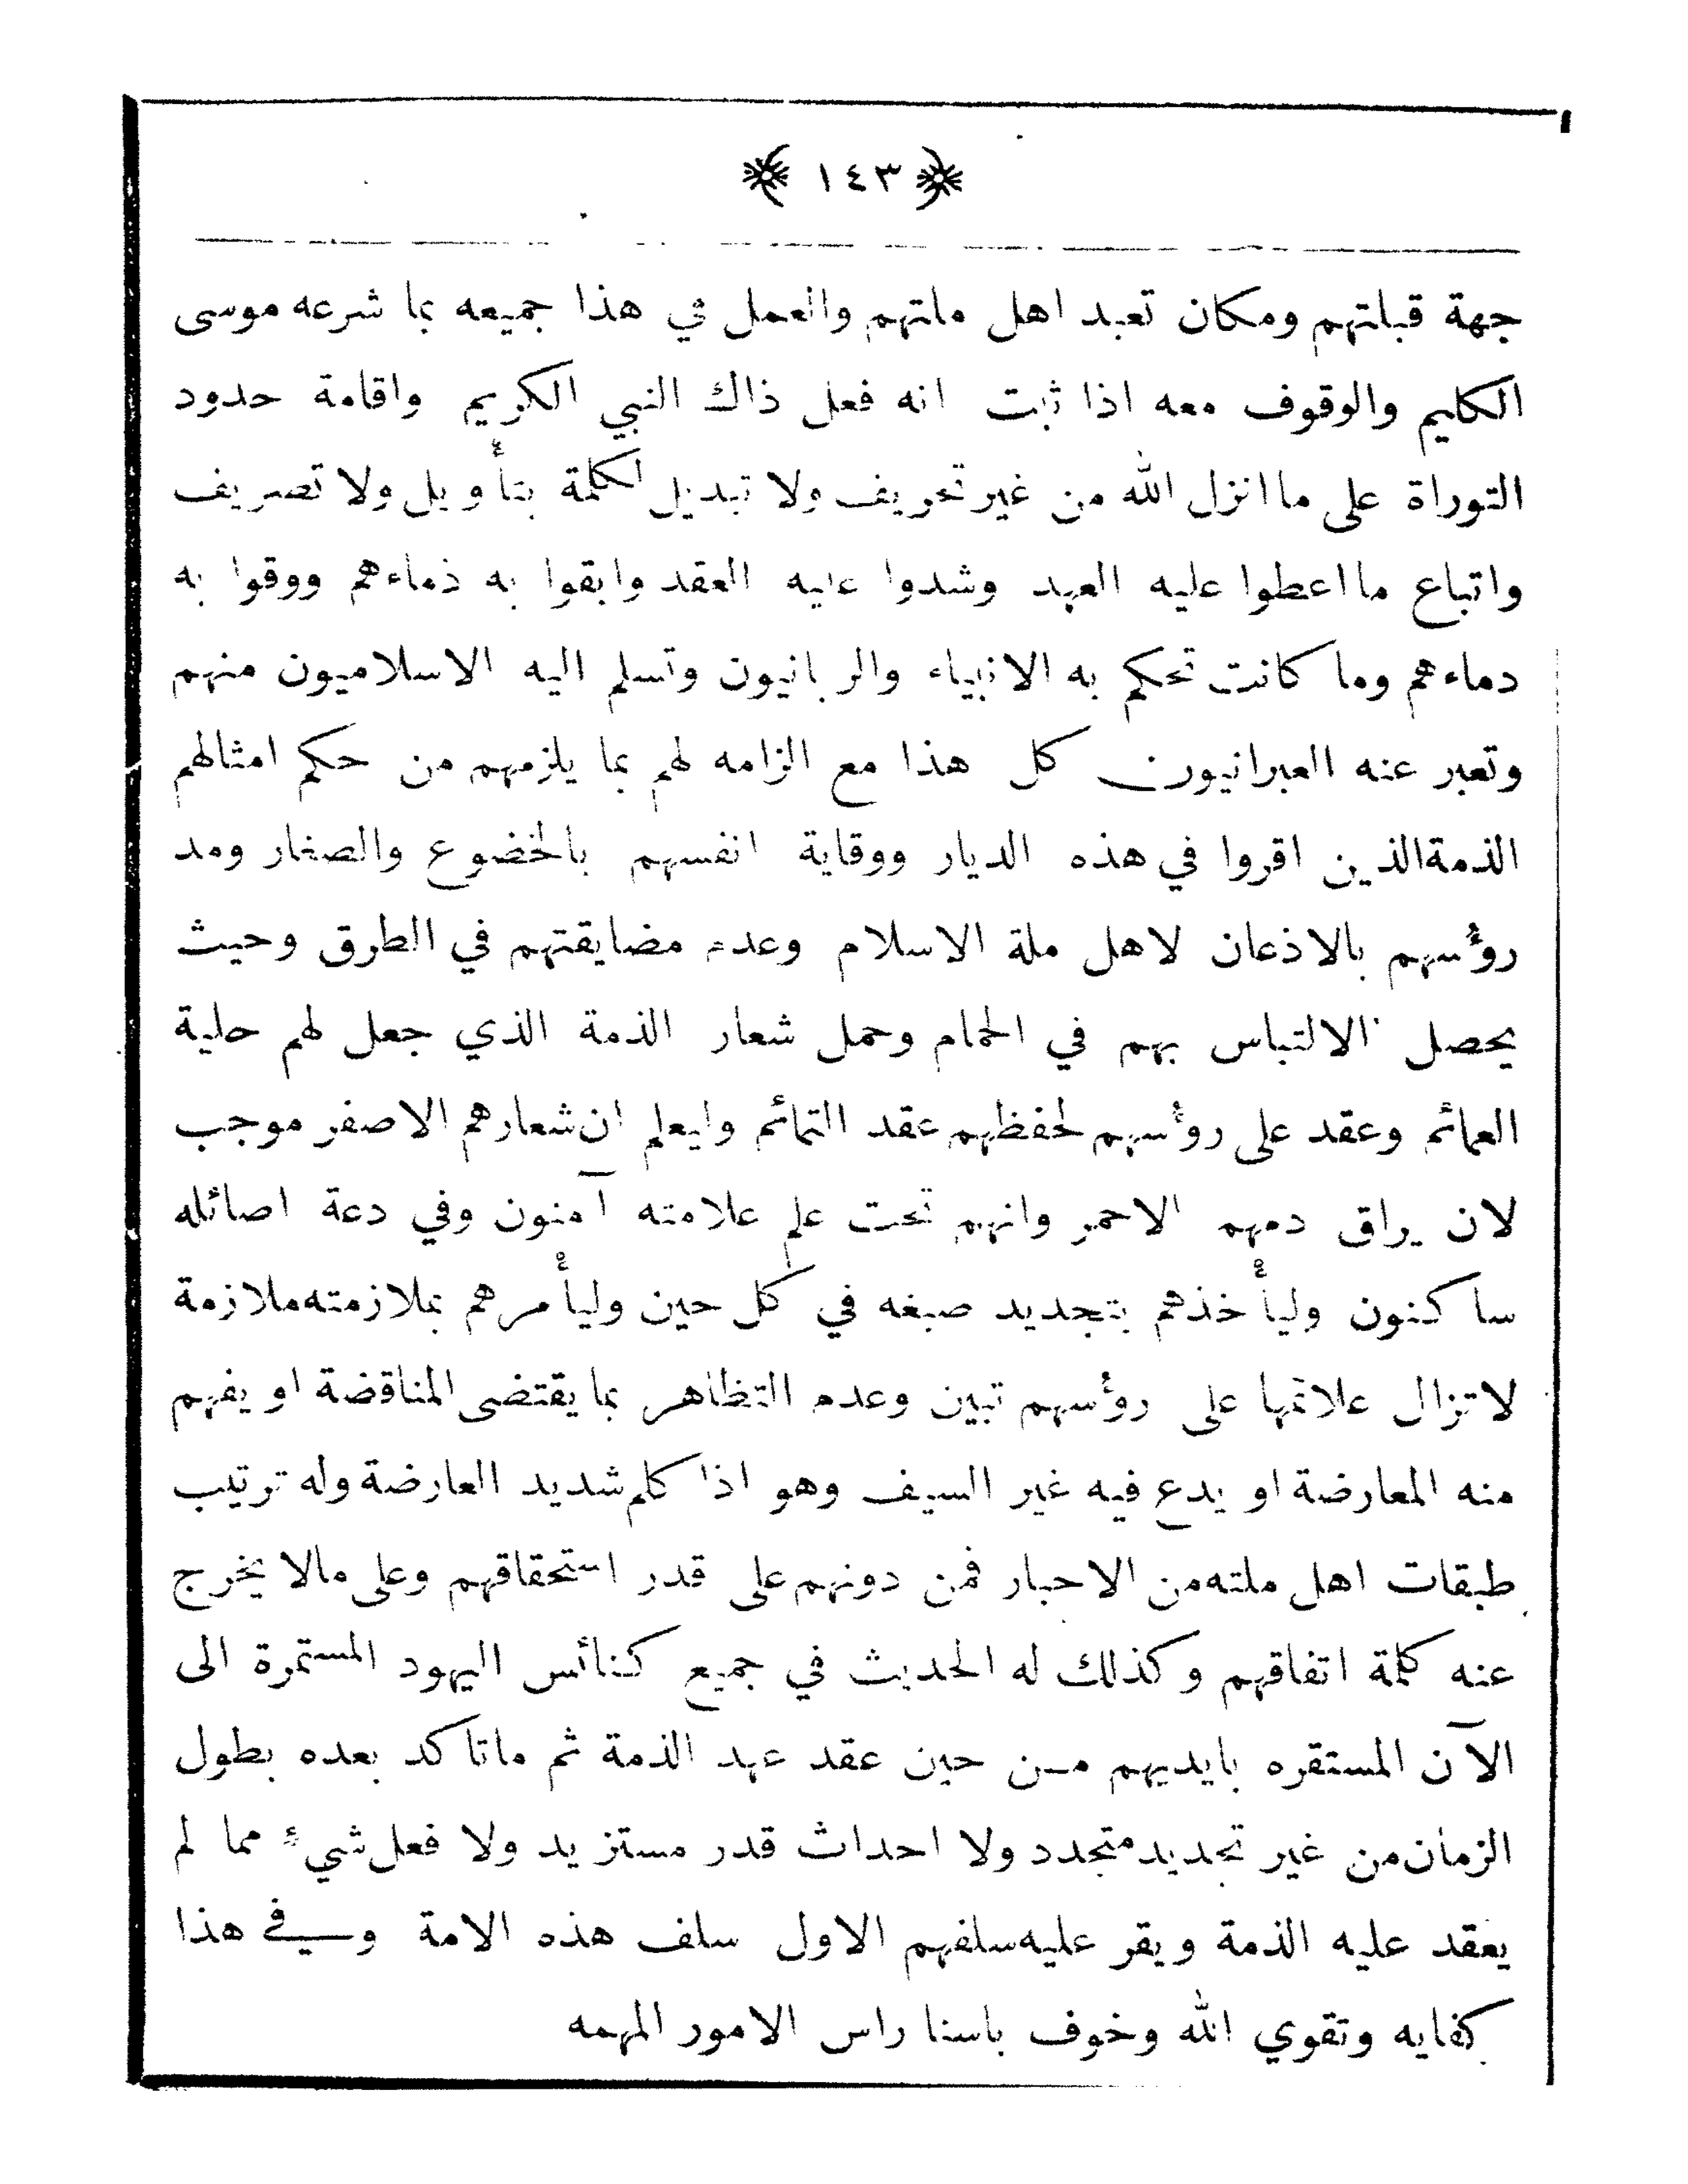 ١٤٣
جهة قبلتهم ومكان تعبد اهل ملتهم والعمل في هذا جميعه بما شرعه موسى
الكليم والوقوف معه اذا ثبت انه فعل ذاك النبي الكريم واقامة حدود
التوراة على ما انزل الله من غير تحريف ولا تبديل لكلمة بتأويل ولا تصريف
واتباع ما اعطوا عليه العهد وشدوا عليه العقد وابقوا به ذماءهم ووقوا به
دماءهم وما كانت تحكم به الانبياء والربانيون وتسلم اليه الاسلاميون منهم
وتعبر عنه العبرانيون كل هذا مع الزامه لهم بما يلزمهم من حكم امثالهم
الذمة الذين اقروا في هذه الديار ووقاية انفسهم بالخضوع والصغار ومد
رؤسهم بالاذعان لاهل ملة الاسلام وعدم مضايقتهم في الطرق وحيث
يحصل الالتباس بهم في الحمام وحمل شعار الذمة الذي جعل لهم حلية
العمائم وعقد على رؤسهم لحفظهم عقد التمائم وليعلم ان شعارهم الاصفر موجب
لان يراق دمهم الاحمر وانهم تحت علم علامته آمنون وفي دعة اصائله
ساكنون وليأخذهم بتجديد صبغه في كل حين وليأمرهم بملازمته ملازمة
لا تزال علائمها على رؤسهم تبين وعدم التظاهر بما يقتضى المناقضة او يفهم
منه المعارضة او يدع فيه غير السيف وهو اذا كلم شديد العارضة وله ترتيب
طبقات اهل ملته من الاحبار فمن دونهم على قدر استحقاقهم وعلى مالا يخرج
عنه كلمة اتفاقهم وكذلك له الحديث في جميع كنائس اليهود المستمرة الى
الآن المستقره بايديهم من حين عقد عهد الذمة ثم ماتاكد بعده بطول
الزمان من غير تجديد متجدد ولا احداث قدر مستزيد ولا فعل شيء مما لم
يعقد عليه الذمة ويقر عليه سلفهم الاول سلف هذه الامة وفي هذا
كفايه وتقوي الله وخوف باسنا راس الامور المهمه